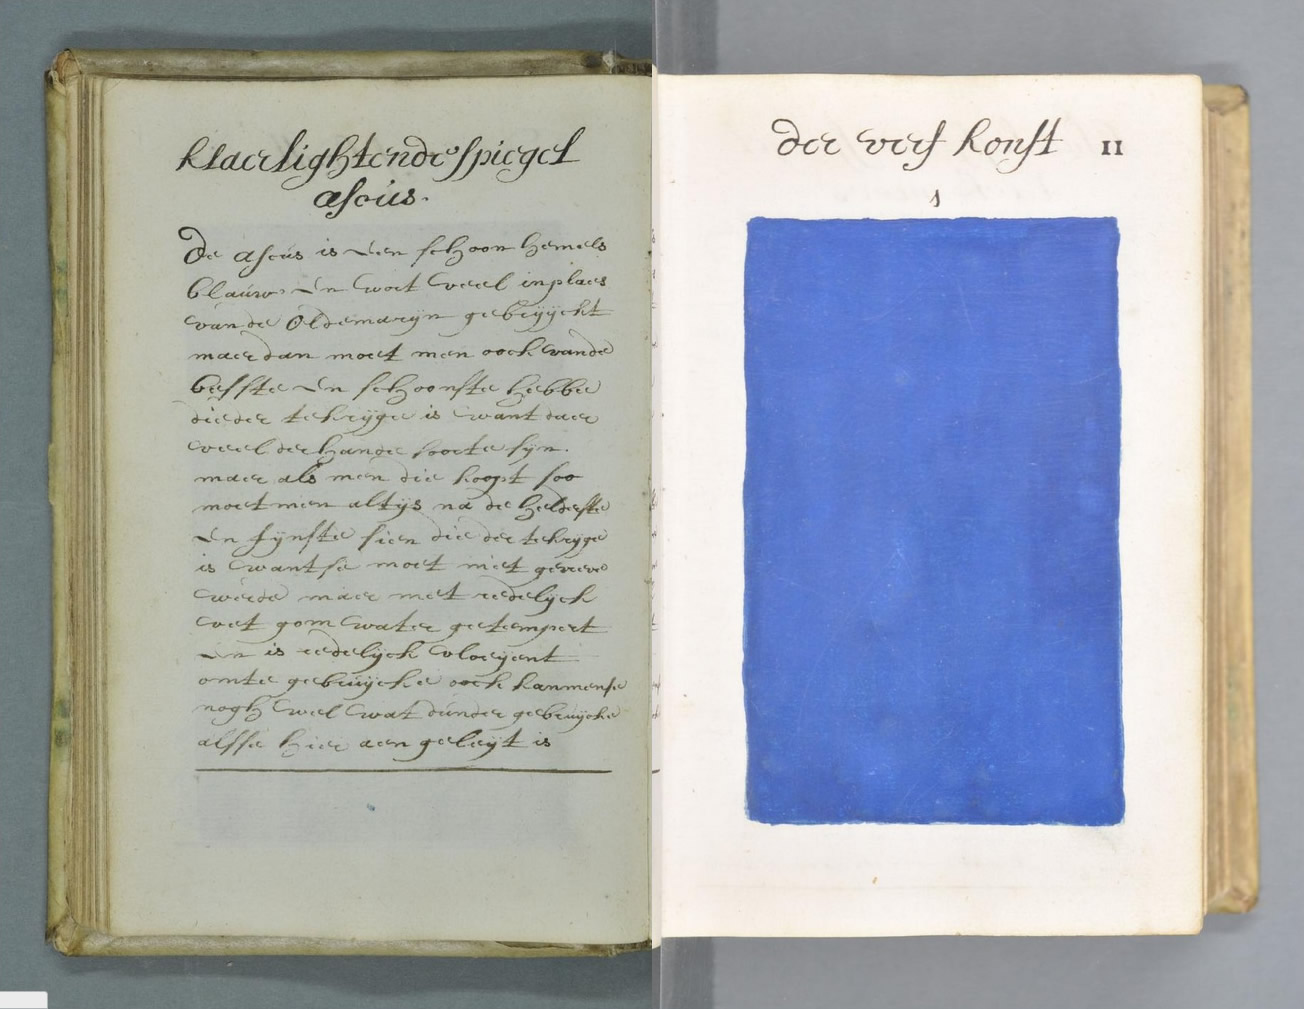 klaerlightende spiegel
ascús.
De ascús is een schoon hemels
blauw en wort veel in plaes
van de Oldemarijn gebrúyckt
maer dan moet men oock vande
beste en schoonste hebbe
die der te krijge is want daer
veel der hande soorte sijn.
maer als men die koopt soo
moet men altijs na de helderste
en fijnste sien die der te krijge
is want se moet niet gevreve
werde maer met redelyck
vet gom water getempert
en is redelijck vloeyent
om te gebruijcke oock kan mense
nogh wel wat dúnder gebruijcke
alsse hier aen geleijt is
der verf konst 11
1